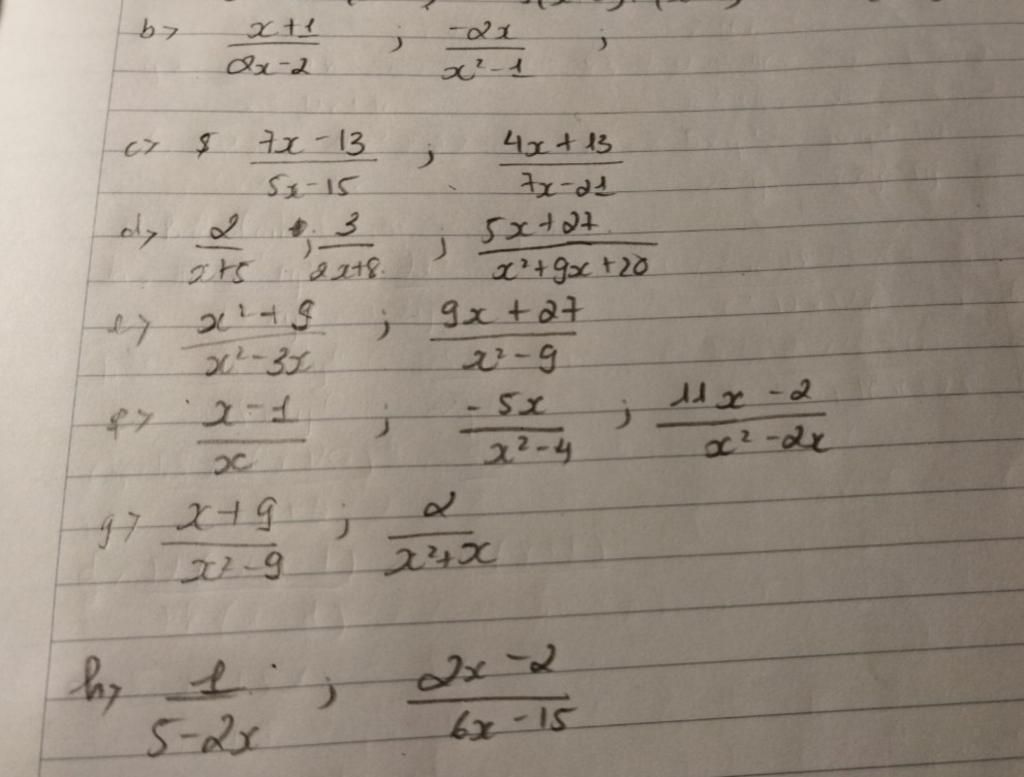 b> x+1/2x-2 ; -2x/x²-1 ;
c> 7x-13/5x-15 ; 4x+13/7x-21
d> 2/x+5 ; 3/2x+8 ; 5x+27/x²+9x+20
e> x²+9/x²-3x ; 9x+27/x²-9
f> x-1/x ; -5x/x²-4 ; 11x-2/x²-2x
g> x+9/x²-9 ; 2/x²+x
h> 1/5-2x ; 2x-2/6x-15